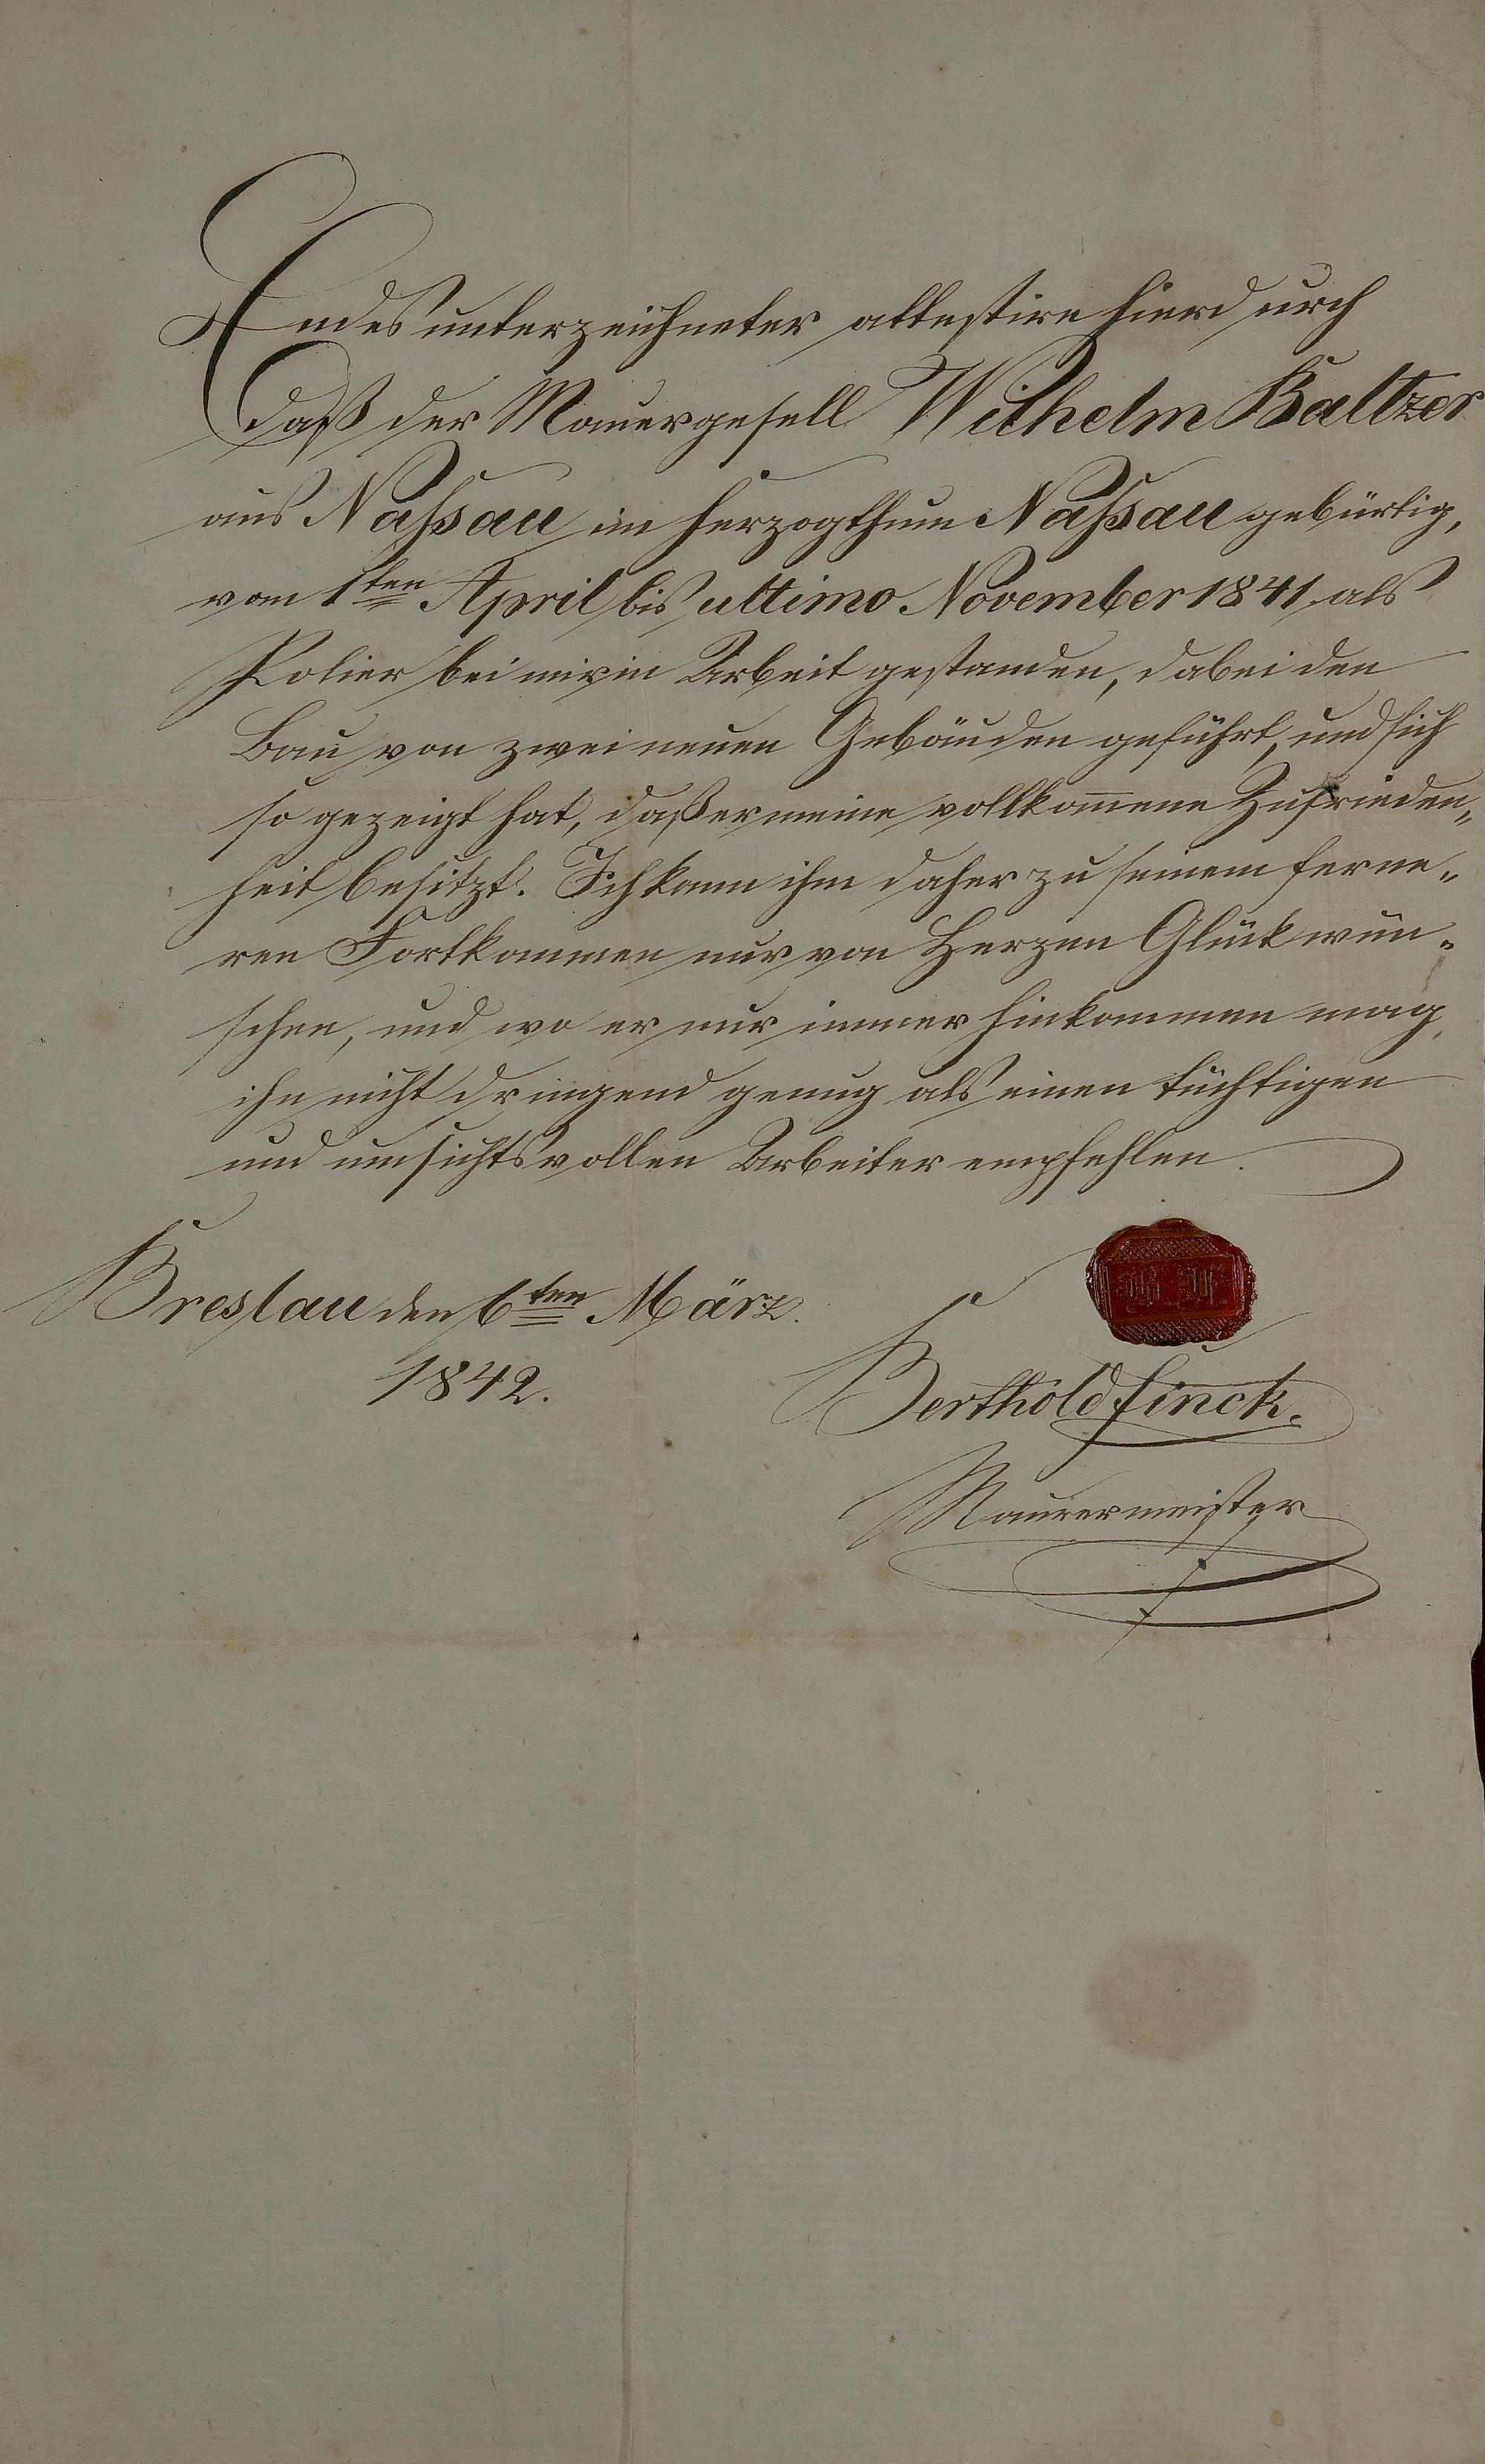 Endes unterzeichneter attestire hierdurch
daß der Mauergesell Wilhelm Baltzer
aus Naßau im Herzogthum Naßau gebürtig,
vom 1ten April bis ultimo November 1841 als
Polier bei mir in Arbeit gestanden, dabei den
Bau von zwei neuen Gebäuden geführt, und sich
so gezeigt hat, daß er meine vollkom̅ene Zufrieden„
heit besitzt. Ich kann ihm daher zu seinem ferne„
ren Fortkommen nur von Herzen Glük wün„
schen, und wo er nur immer hinkommen mag,
ihn nicht dringend genug als einen tüchtigen
und umsichtsvollen Arbeiter empfehlen.
Breslau den 6ten März.
1842.
B. F.
Berthold Finck.
Maurermeister